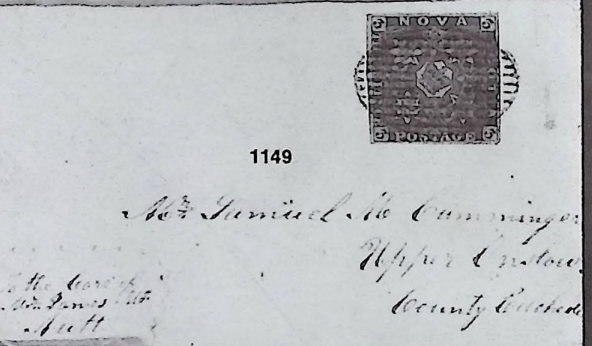 NOVA
POSTAGE
5 5 5 5
1149
Mr. Samuel Mc Cumminger
Upper Onslow
County Colcheste
To the Care of
Mr. James